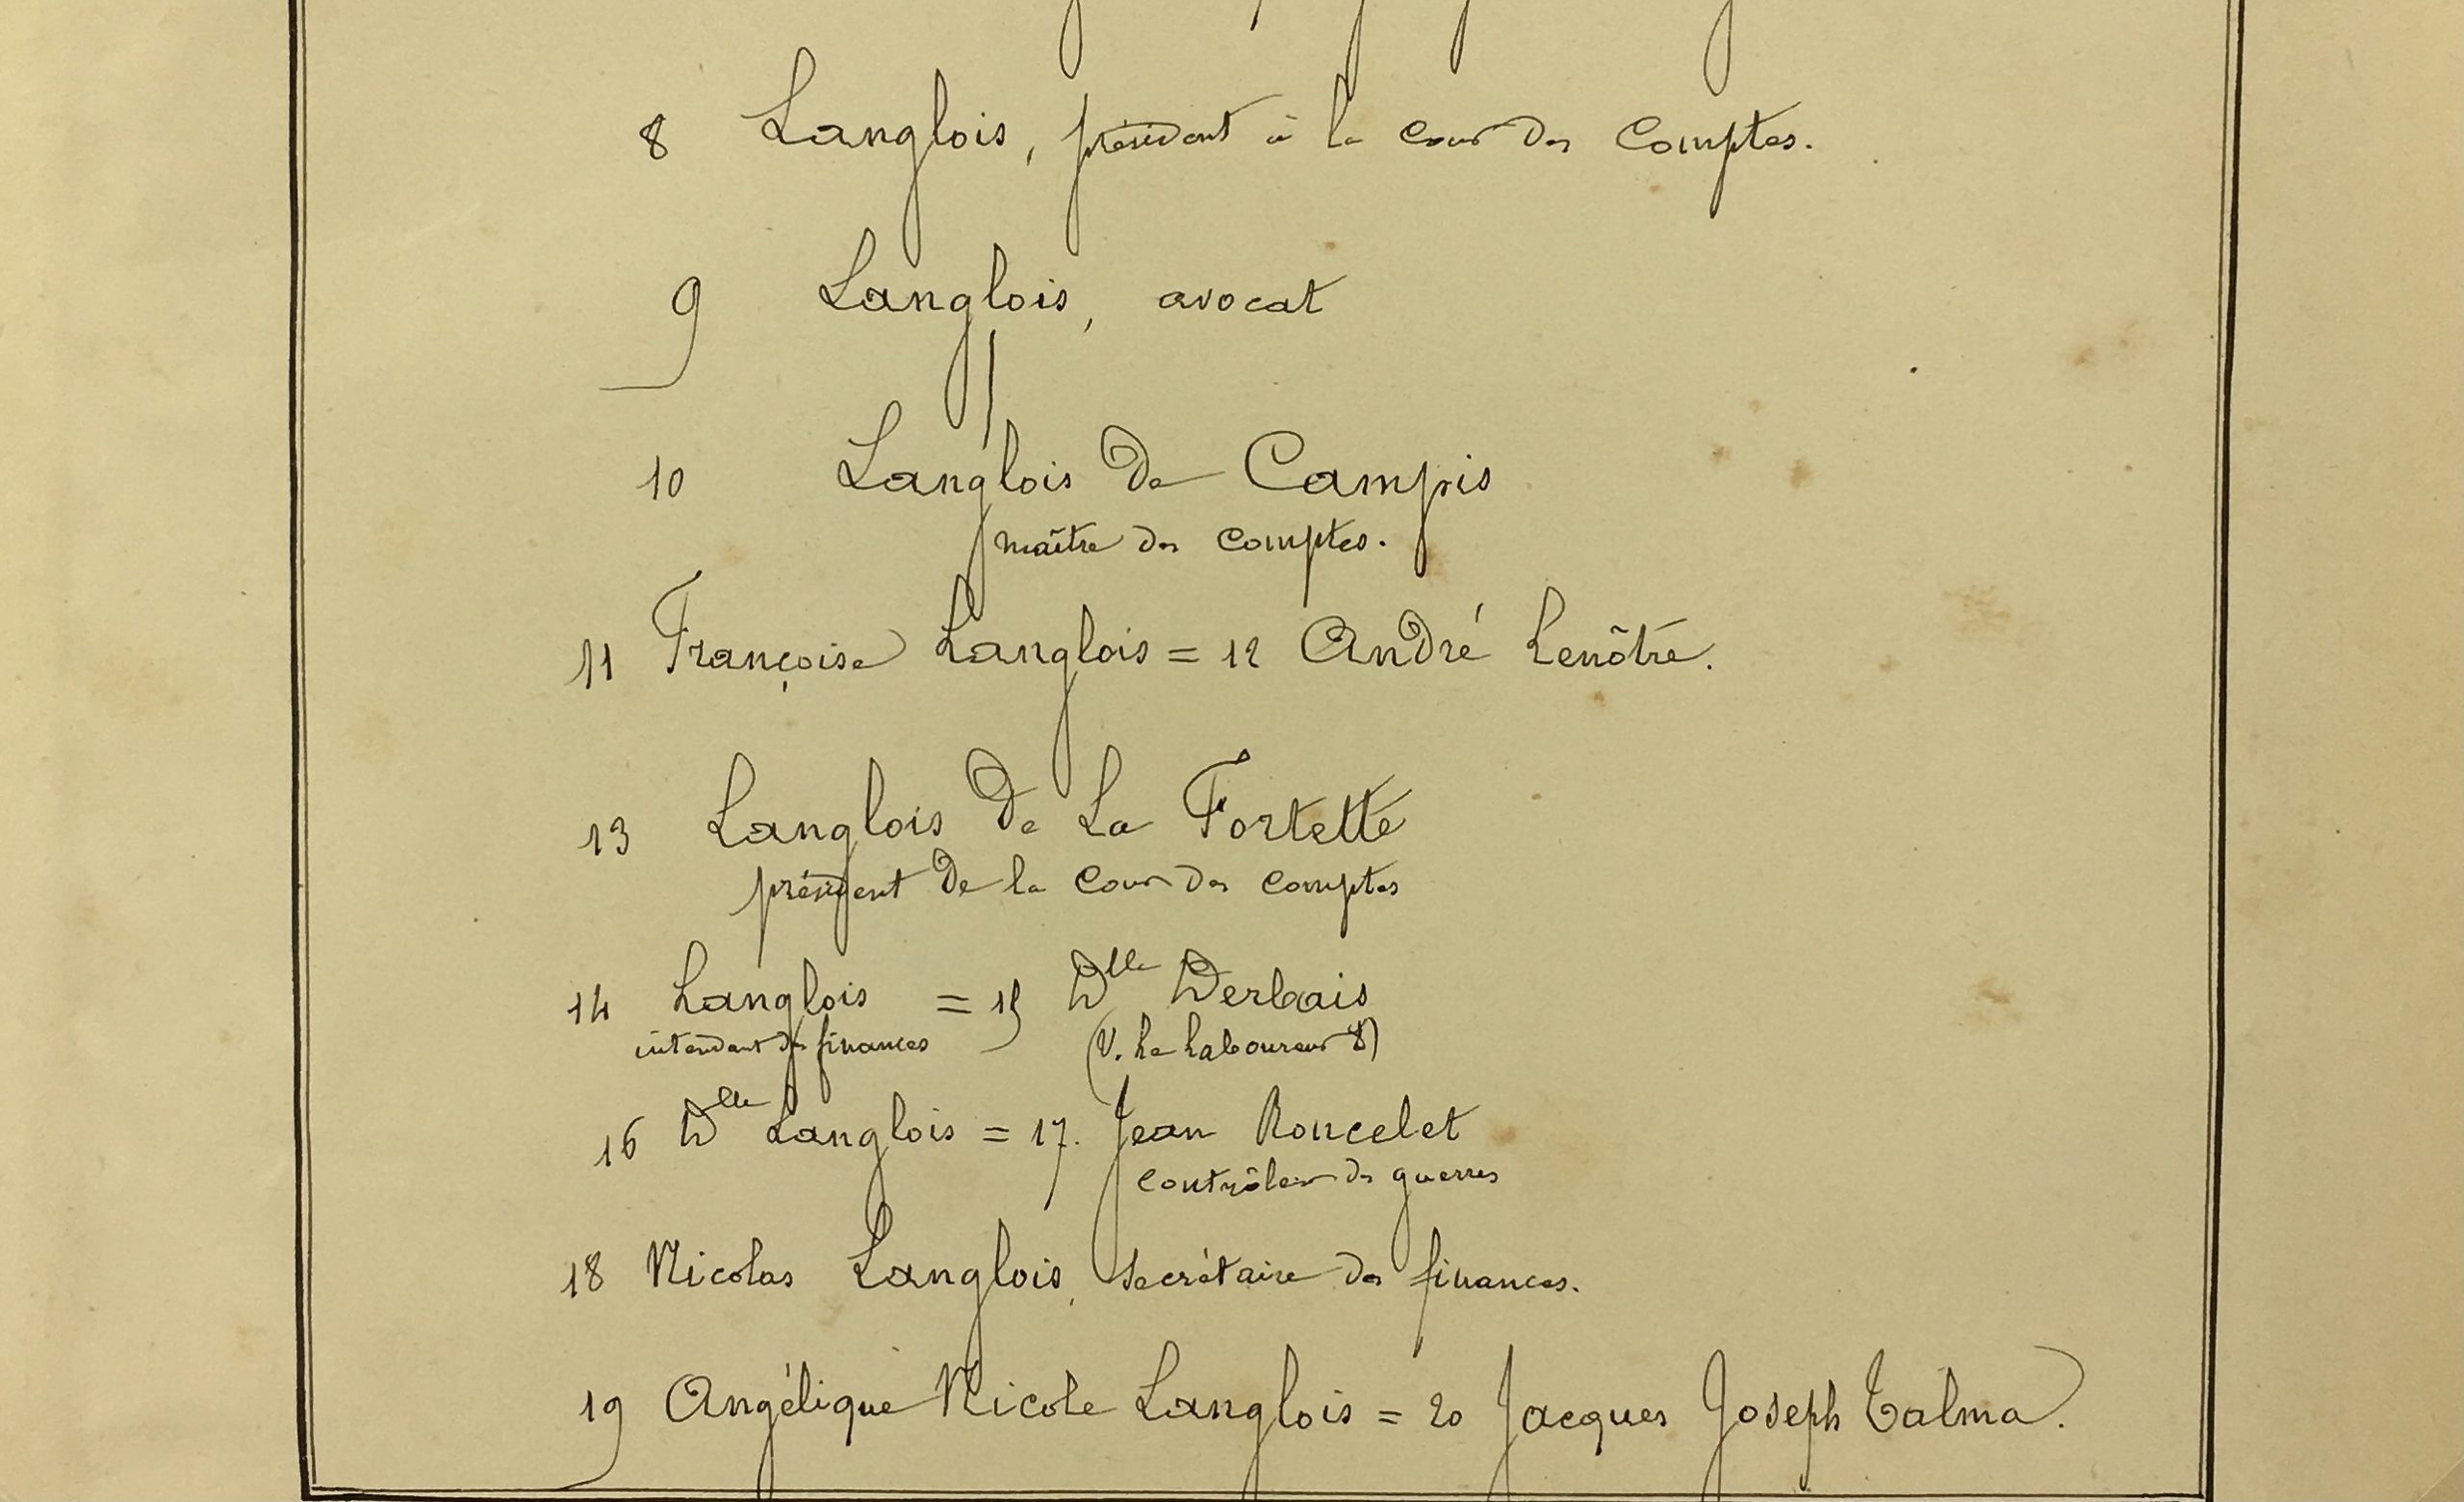 8 Langlois, président à la Cour des Comptes.
9 Langlois, avocat
10 Langlois De Campis
maître des Comptes.
11 Françoise Langlois = 12 André Lenôtre.
13 Langlois De La Fortette
président De la Cour des Comptes
14 Langlois = 15 Dlle Derbais
intendant des finances (V. Le Laboureur 8)
16 Dlle Langlois = 17. Jean Roncelet
Contrôleur des guerres
18 Nicolas Langlois, secrétaire des finances.
19 Angélique Nicole Langlois = 20 Jacques Joseph Talma.